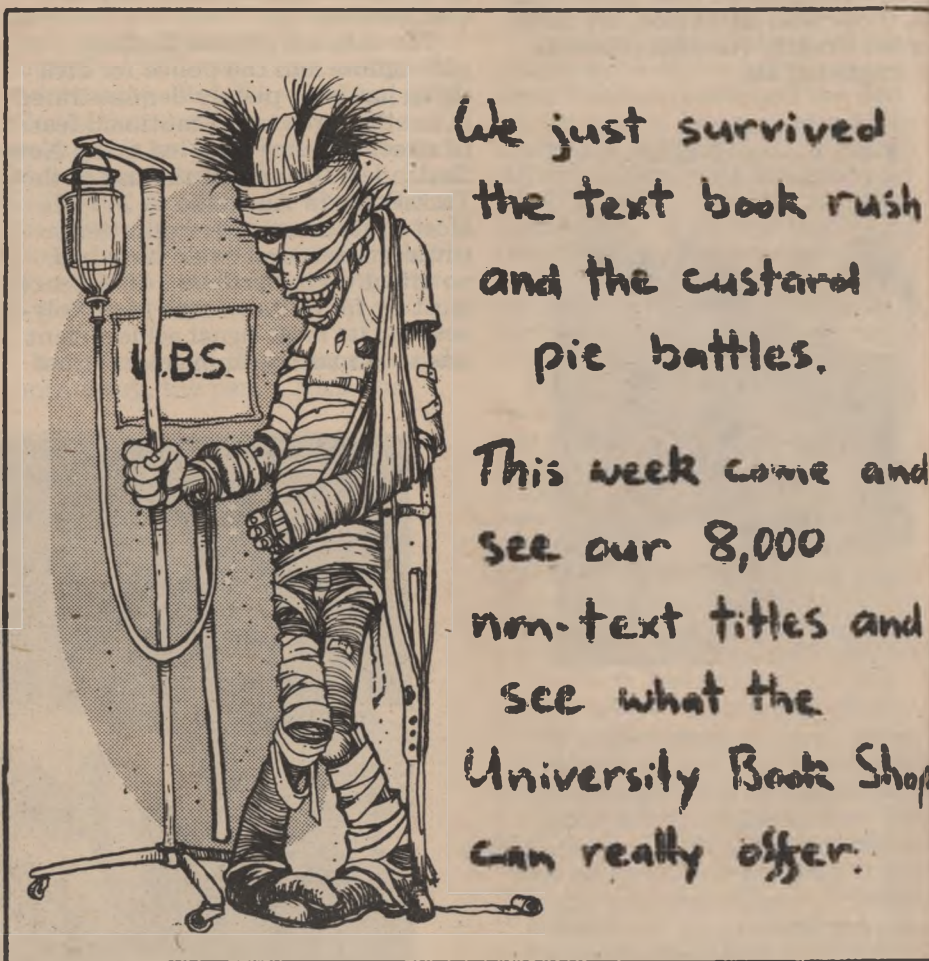 U.B.S.
We just survived
the text book rush
and the custard
pie battles.
This week come and
see our 8,000
non-text titles and
see what the
University Book Shop
can really offer.